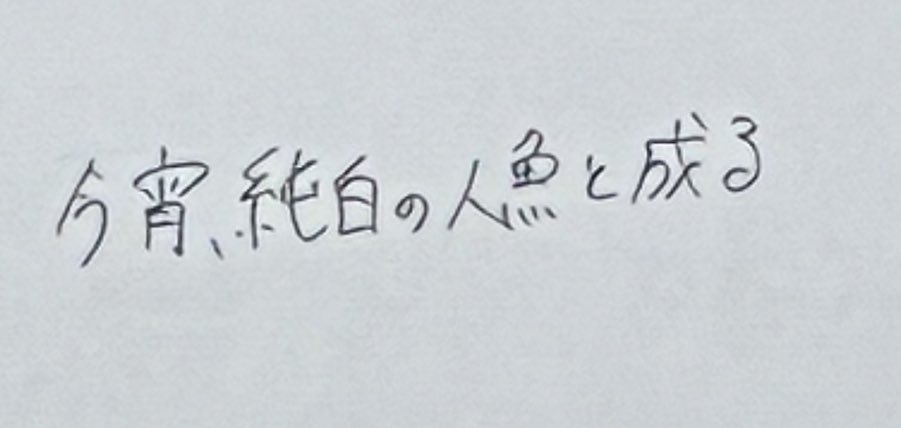 今宵、純白の人魚と成る